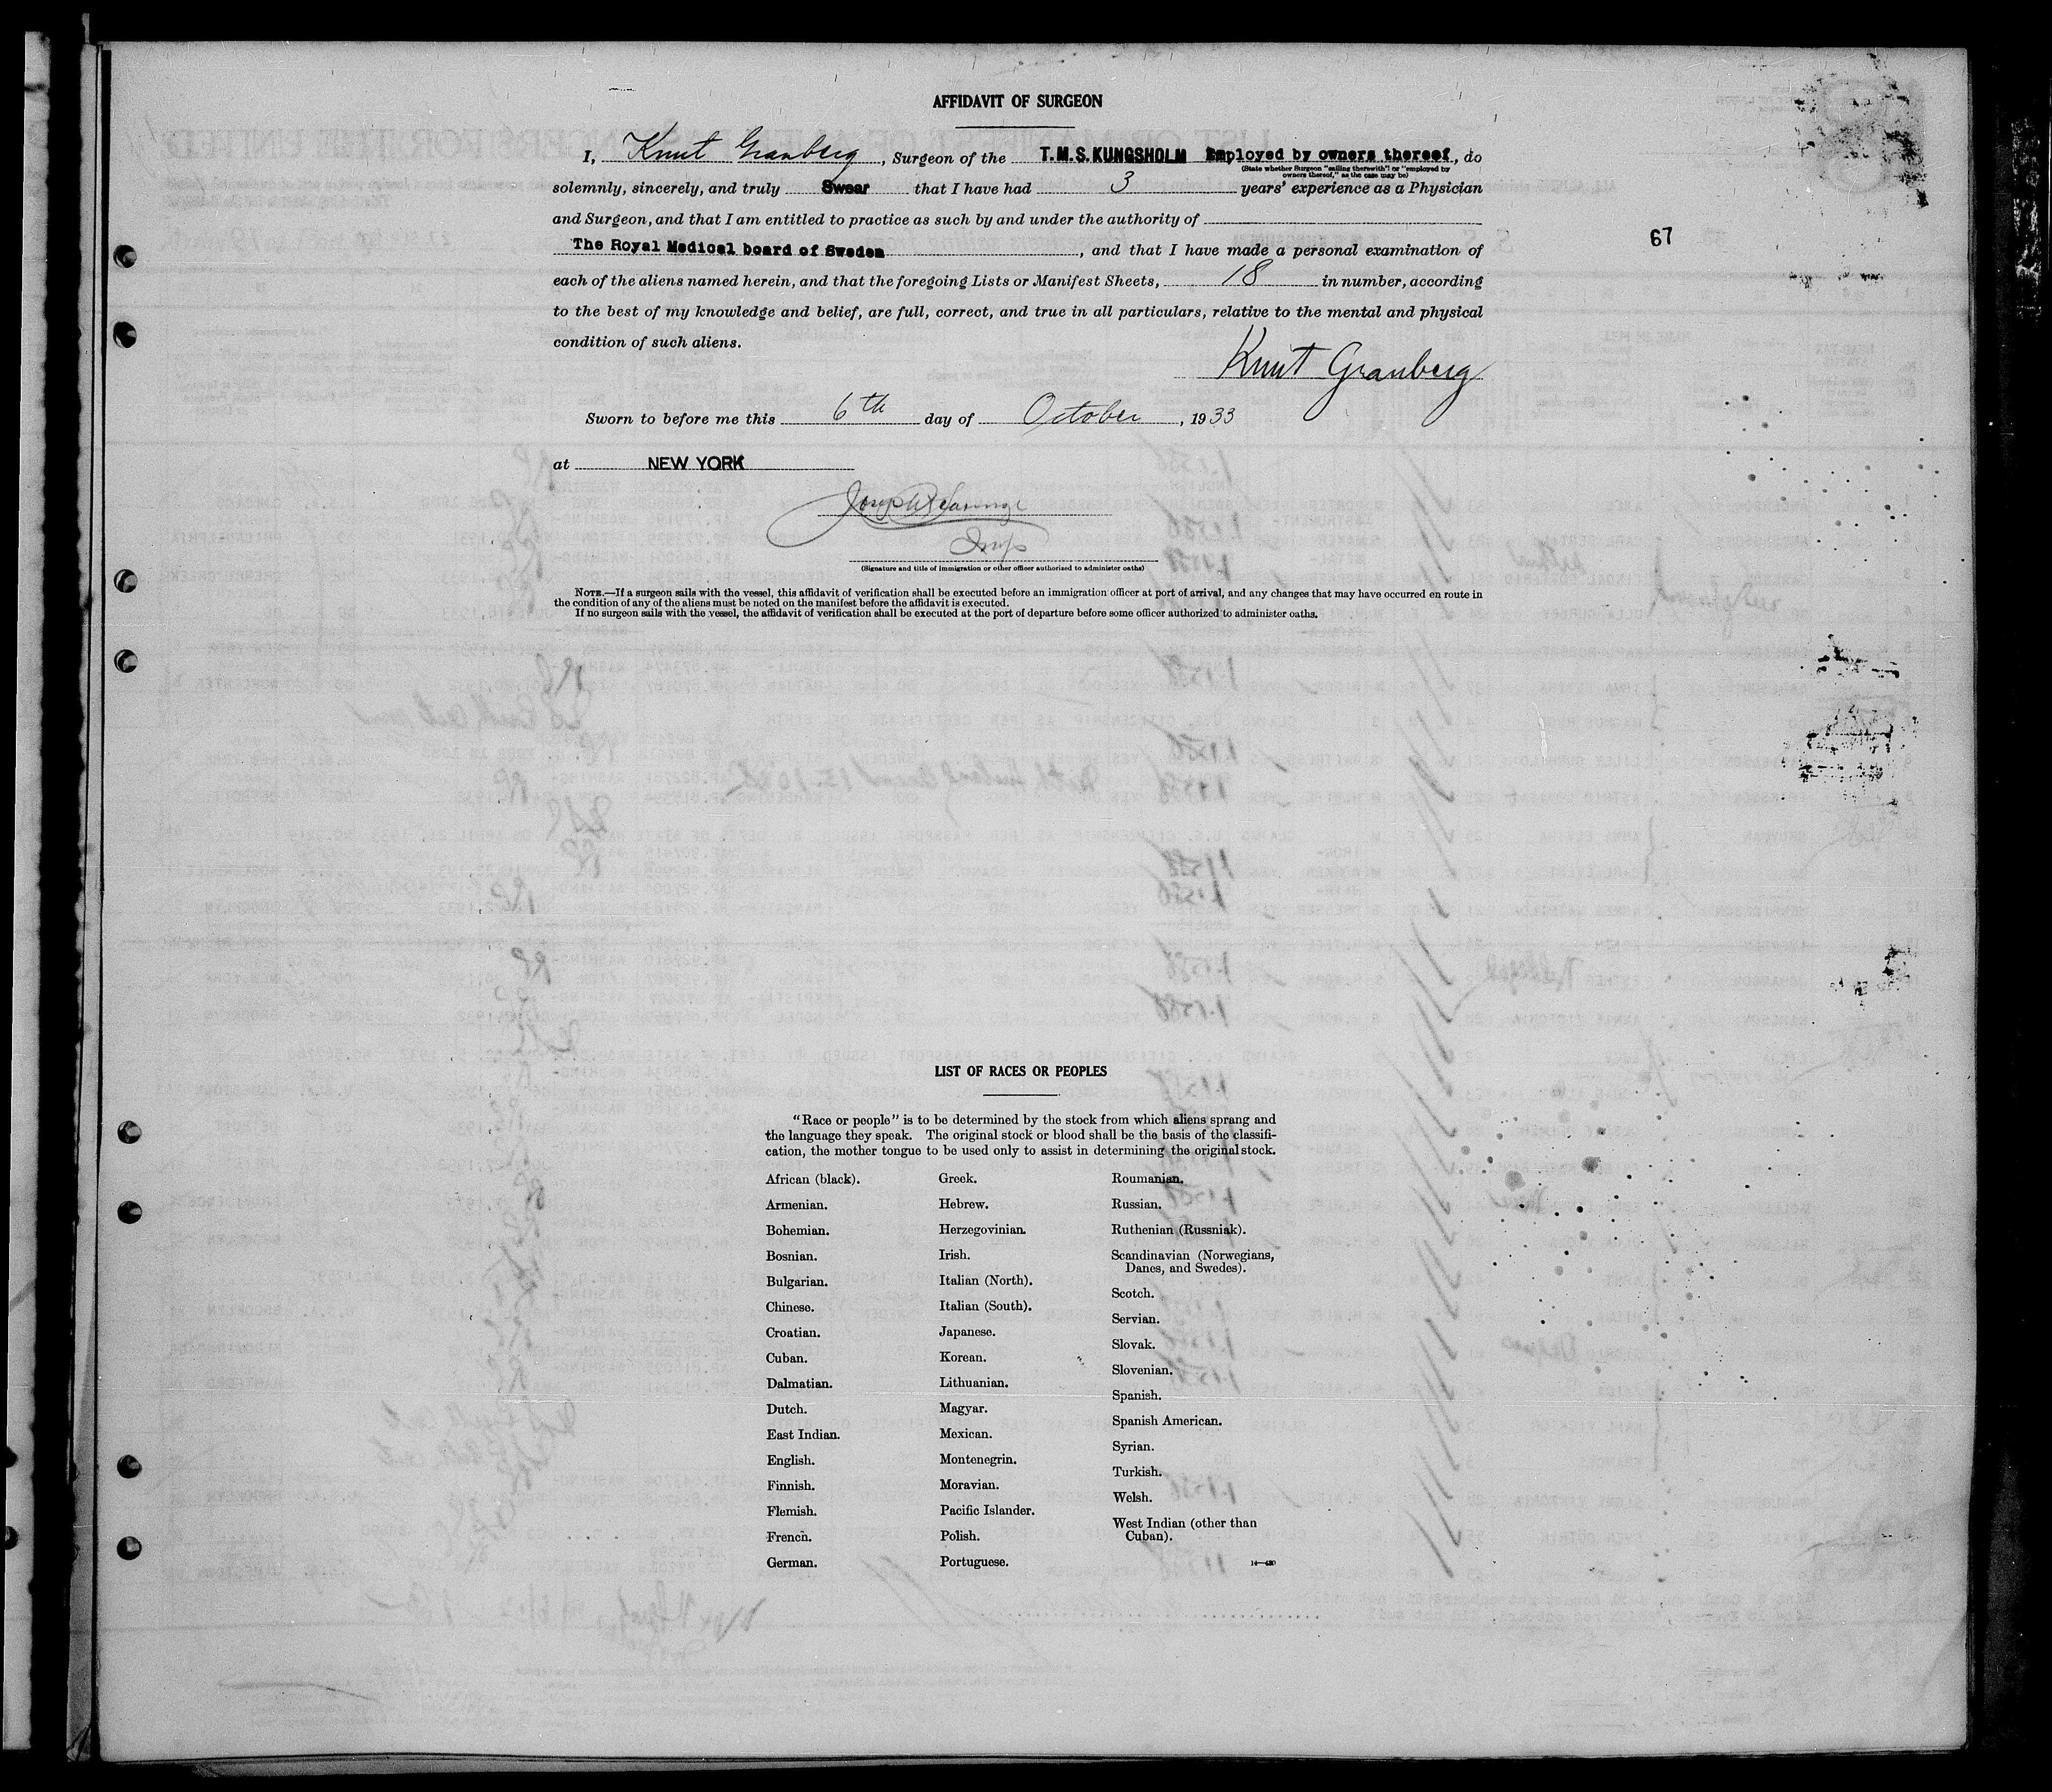 AFFIDAVIT OF SURGEON
I, Knut Granberg, Surgeon of the T.M.S.KUNGSHOLM Employed by owners thereof, do
(State whether Surgeon "sailing therewith" or "employed by
owners thereof," as the case may be)
solemnly, sincerely, and truly Swear that I have had 3 years' experience as a Physician
and Surgeon, and that I am entitled to practice as such by and under the authority of
The Royal Medical board of Sweden, and that I have made a personal examination of
67
each of the aliens named herein, and that the foregoing Lists or Manifest Sheets, 18 in number, according
to the best of my knowledge and belief, are full, correct, and true in all particulars, relative to the mental and physical
condition of such aliens.
Knut Granberg
Sworn to before me this 6th day of October, 1933
at NEW YORK
Insp
(Signature and title of immigration or other officer authorized to administer oaths)
NOTE.—If a surgeon sails with the vessel, this affidavit of verification shall be executed before an immigration officer at port of arrival, and any changes that may have occurred en route in
the condition of any of the aliens must be noted on the manifest before the affidavit is executed.
If no surgeon sails with the vessel, the affidavit of verification shall be executed at the port of departure before some officer authorized to administer oaths.
LIST OF RACES OR PEOPLES
"Race or people" is to be determined by the stock from which aliens sprang and
the language they speak. The original stock or blood shall be the basis of the classifi-
cation, the mother tongue to be used only to assist in determining the original stock.
African (black).
Armenian.
Bohemian.
Bosnian.
Bulgarian.
Chinese.
Croatian.
Cuban.
Dalmatian.
Dutch.
East Indian.
English.
Finnish.
Flemish.
French.
German.
Greek.
Hebrew.
Herzegovinian.
Irish.
Italian (North).
Italian (South).
Japanese.
Korean.
Lithuanian.
Magyar.
Mexican.
Montenegrin.
Moravian.
Pacific Islander.
Polish.
Portuguese.
Roumanian.
Russian.
Ruthenian (Russniak).
Scandinavian (Norwegians,
Danes, and Swedes).
Scotch.
Servian.
Slovak.
Slovenian.
Spanish.
Spanish American.
Syrian.
Turkish.
Welsh.
West Indian (other than
Cuban).